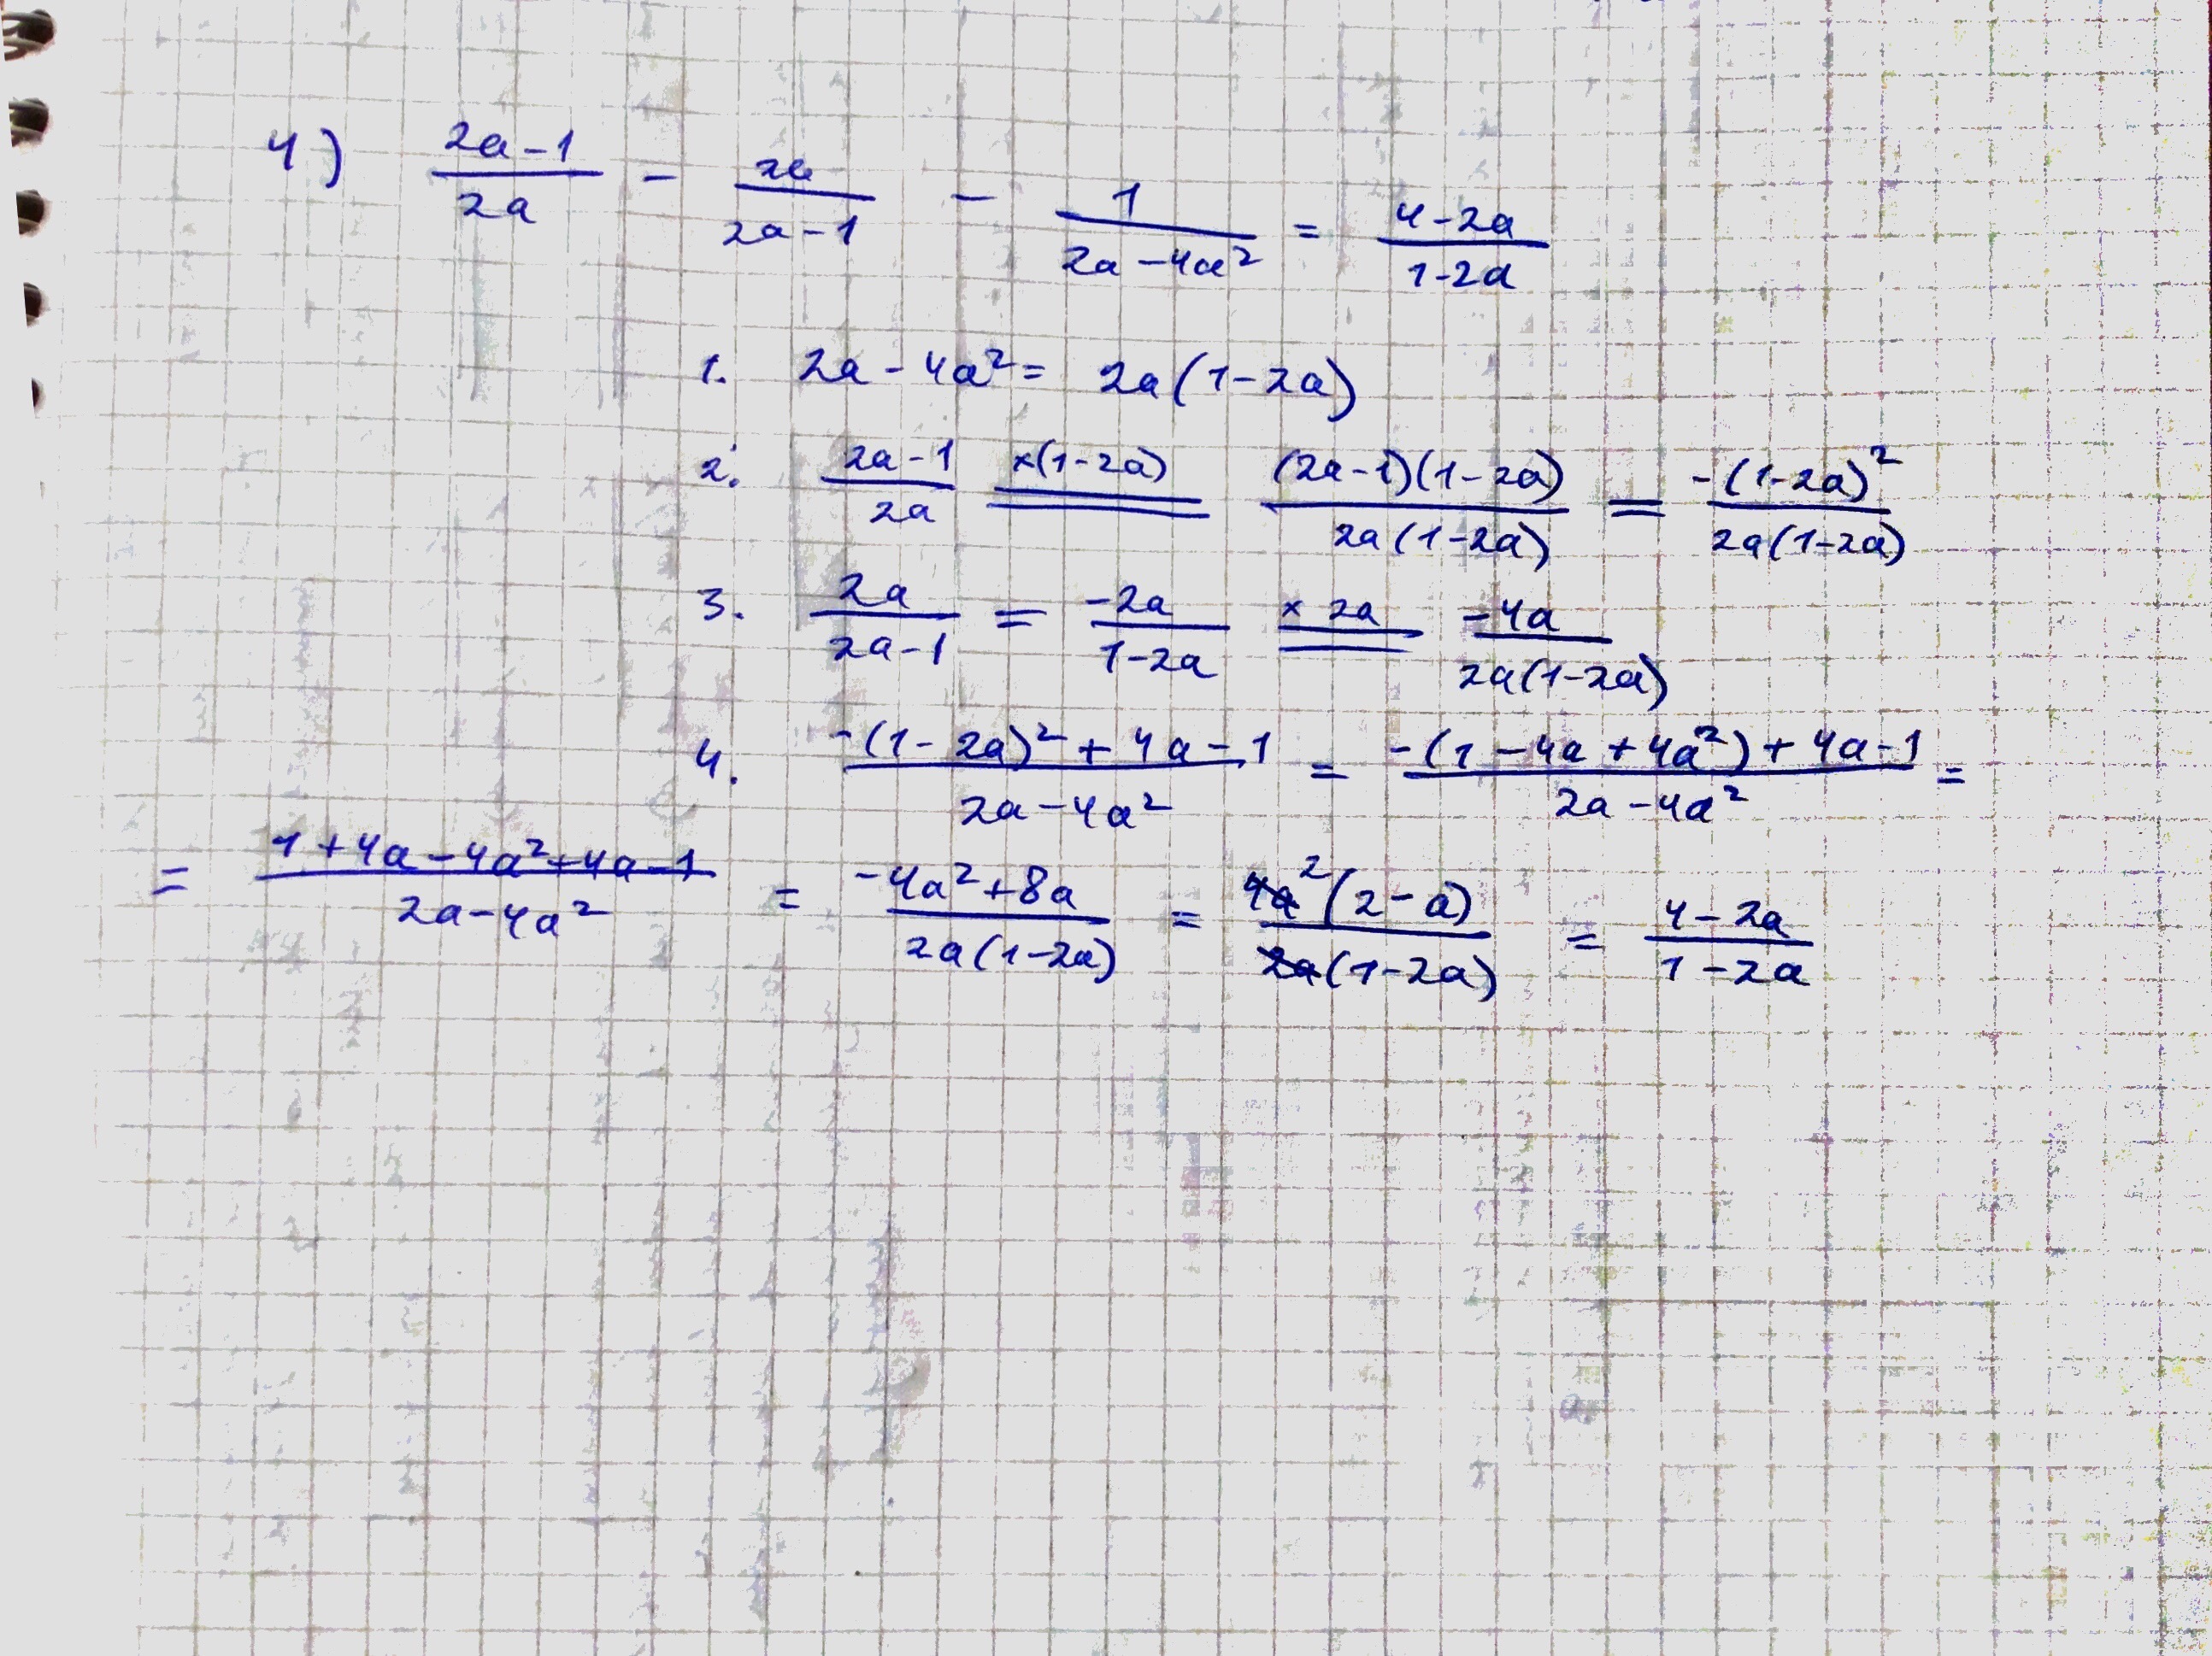 4) \frac{2a-1}{2a} - \frac{2a}{2a-1} - \frac{1}{2a-4a^2} = \frac{4-2a}{1-2a}
1. 2a-4a^2 = 2a(1-2a)
2. \frac{2a-1}{2a} \overset{×(1-2a)}{=} \frac{(2a-1)(1-2a)}{2a(1-2a)} = \frac{-(1-2a)^2}{2a(1-2a)}
3. \frac{2a}{2a-1} = \frac{-2a}{1-2a} \overset{×2a}{=} \frac{-4a}{2a(1-2a)}
4. \frac{-(1-2a)^2+4a-1}{2a-4a^2} = \frac{-(1-4a+4a^2)+4a-1}{2a-4a^2} =
= \frac{1+4a-4a^2+4a-1}{2a-4a^2} = \frac{-4a^2+8a}{2a(1-2a)} = \frac{4a^2(2-a)}{2a(1-2a)} = \frac{4-2a}{1-2a}